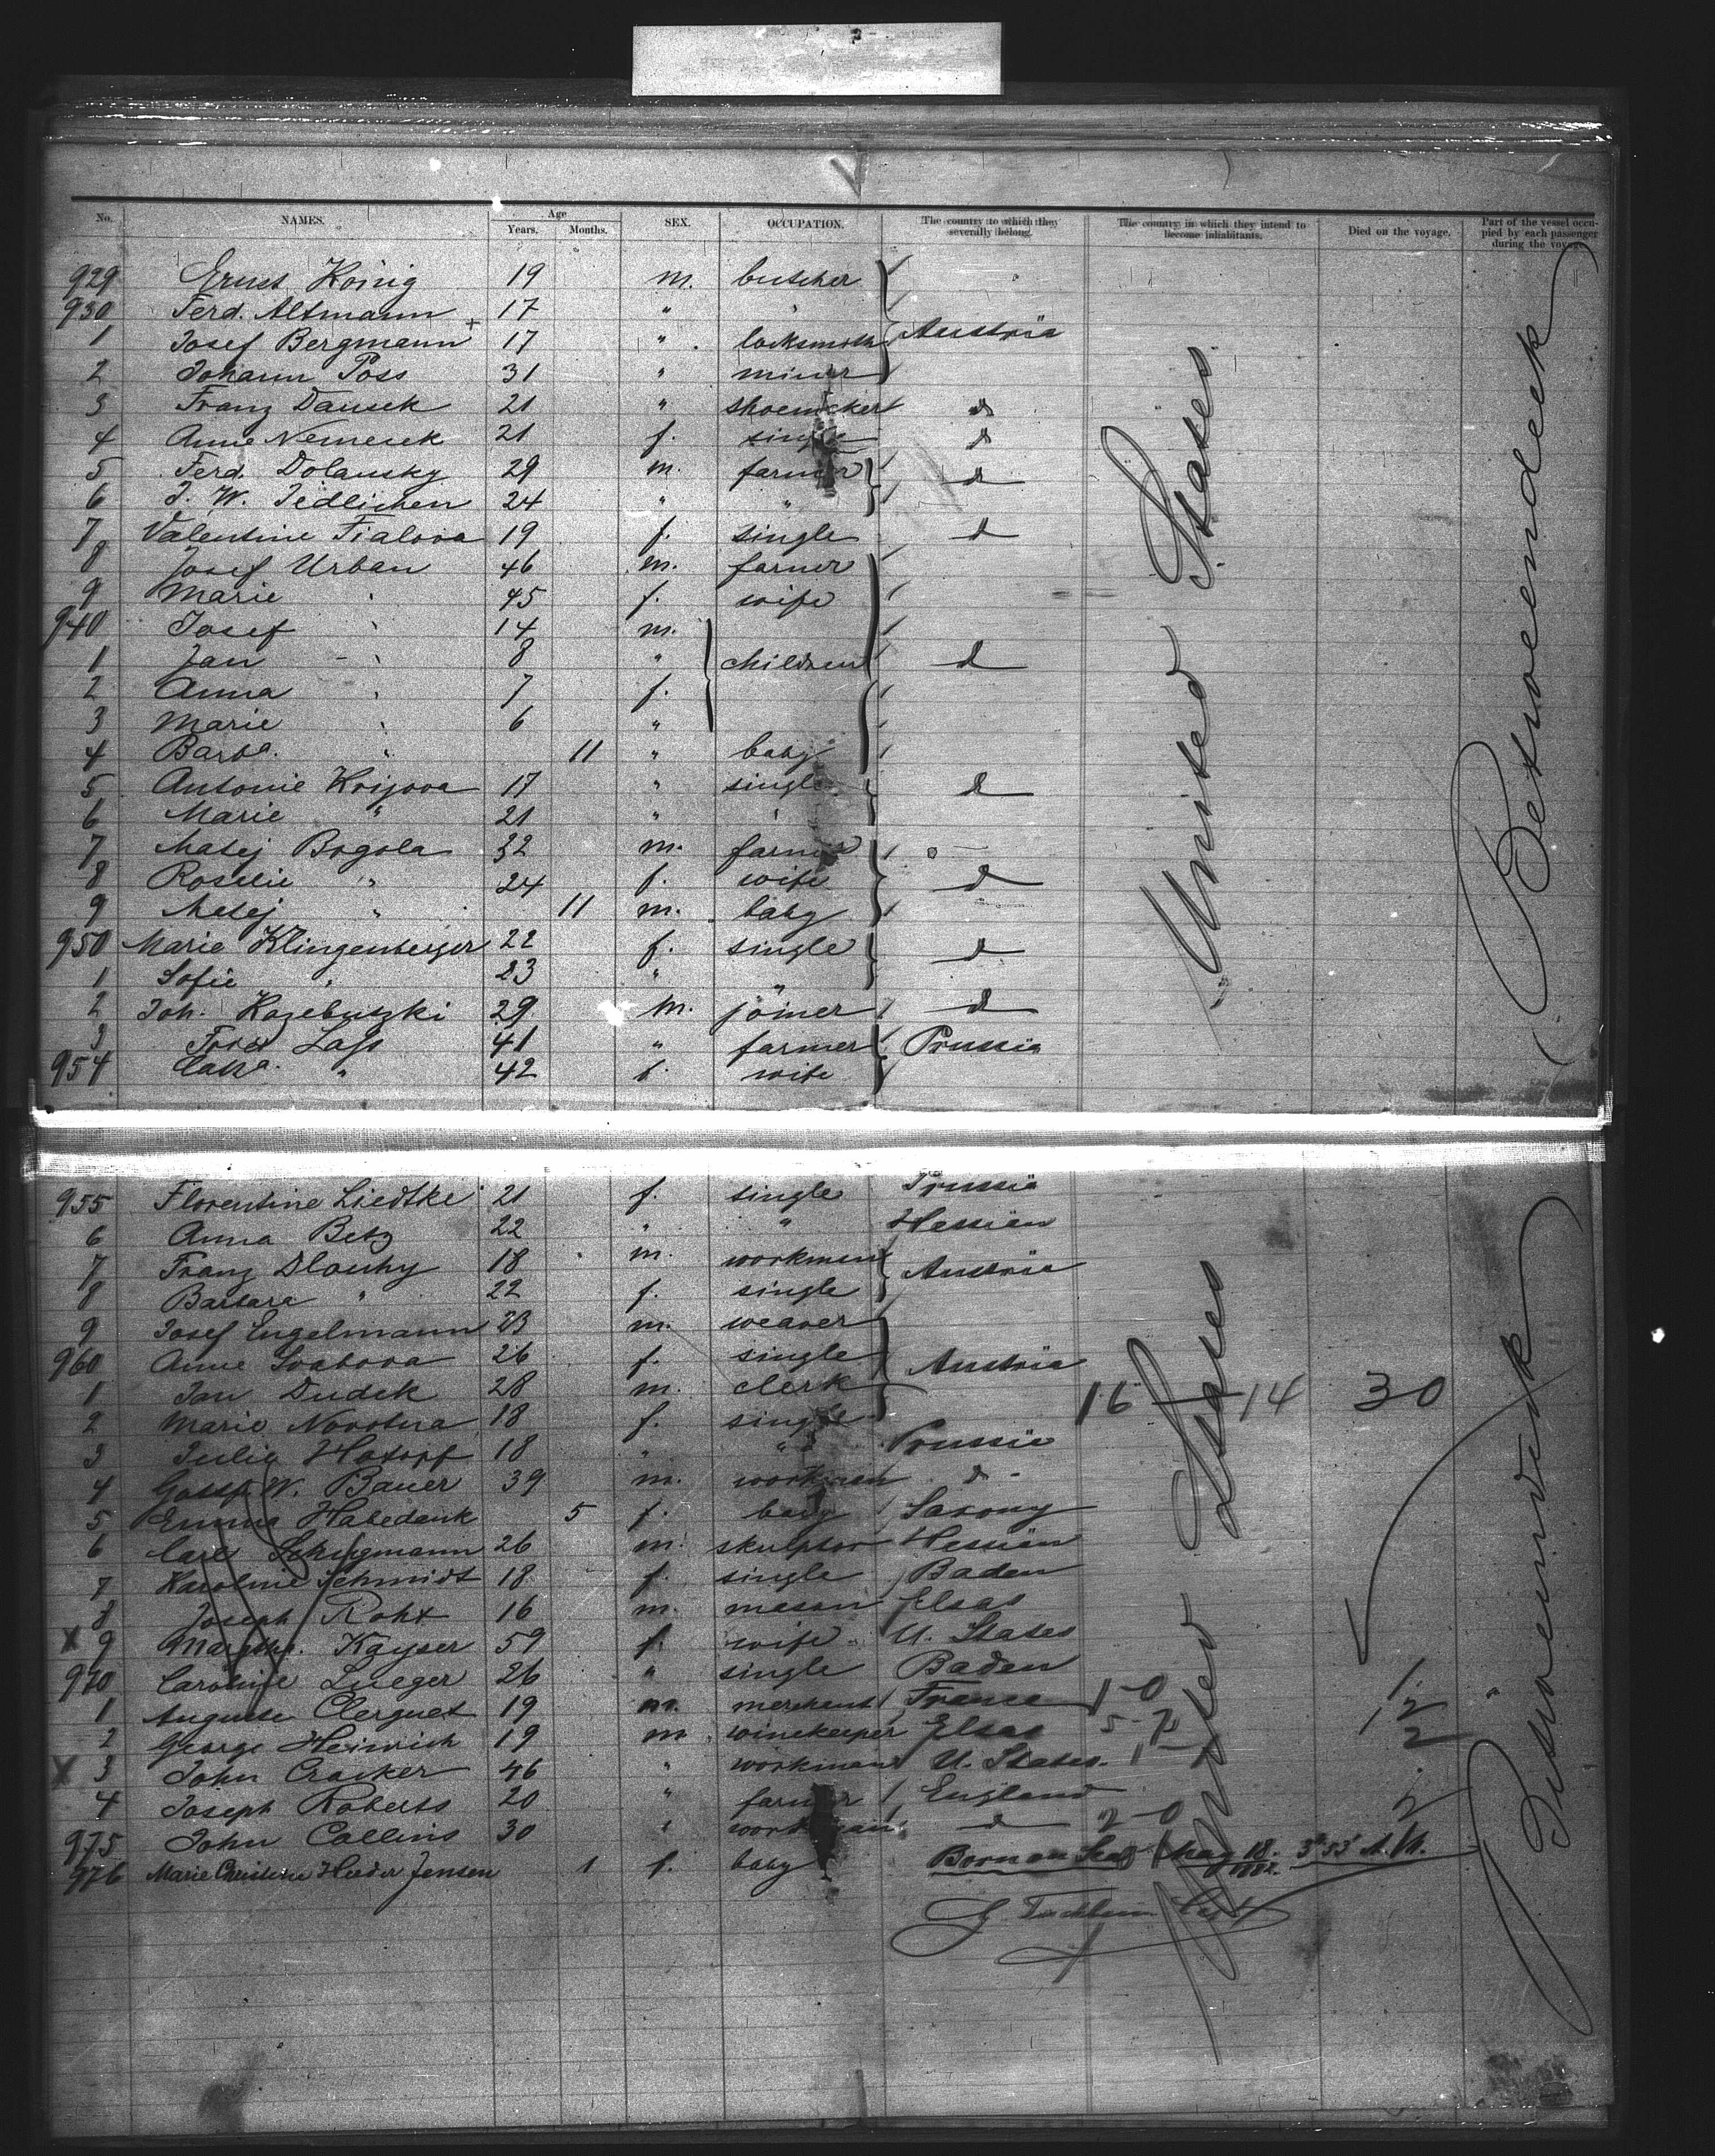 No. NAMES. Age Years. Months. SEX. OCCUPATION. The country to which they severally belong. The country in which they intend to become inhabitants. Died on the voyage. Part of the vessel occupied by each passenger during the voyage.
929 Ernst König 19 m. butcher
930 Ferd. Altmann 17 "
1 Josef Bergmann 17 " locksmith Austria
2 Johann Poss 31 " miner
3 Franz Dausek 21 " shoemaker d
4 Anne Nemecek 21 f. single d
5 Ferd. Dolansky 29 m. farmer d
6 J. W. Jedlichen 24 " "
7 Valentine Fialova 19 f. single d
8 Josef Urban 46 m. farmer
9 Marie " 45 f. wife
940 Josef " 14 m.
1 Jan " 8 " children d
2 Anna " 7 f.
3 Marie " 6 "
4 Barba. " 11 " baby
5 Antonie Krijova 17 " single d
6 Marie " 21 " "
7 Matej Bogola 32 m. farmer
8 Rosalie " 24 f. wife d
9 Matej " 11 m. baby
950 Marie Klingenberger 22 f. single d
1 Sofie " 23 " "
2 Joh. Kazebuszki 29 m. joiner d
3 Lass 41 " farmer Prussia
954 Catha. " 42 f. wife
United States
Betweendeck
955 Florentine Liedtke 21 f. single Prussia
6 Anna Betz 22 " " Hessian
7 Franz Dlouhy 18 m. workman Austria
8 Barbara " 22 f. single
9 Josef Engelmann 23 m. weaver
960 Anne Svabova 26 f. single Austria
1 Jan Dudek 28 m. clerk 16 14 30
2 Marie Novotna 18 f. single
3 Julia Hotopf 18 " " Prussia
4 W. Bauer 39 m. workman d
5 Emma Habedank 5 f. baby Saxony
6 Carl 26 m. skulptor Hessian
7 Karoline Schmidt 18 f. single Baden
8 Joseph Roht 16 m. mason Elsas
X 9 Margtha. Kayser 59 f. wife U. States
970 Caroline Lueger 26 " single Baden
1 Auguste Clerguet 19 m. merchant France 1-0 1
2 George Heinrich 19 m. winekeeper Elsas 5-7 12
X 3 John Cracker 46 " workman U. States. 1-1 2
4 Joseph Roberts 20 " farmer England
975 John Collins 30 " workman d 2-0 2
976 Marie Christine Jensen 1 f. baby Born on Sea May 18. 1882. 3h 53' A.M.
United States
Betweendeck